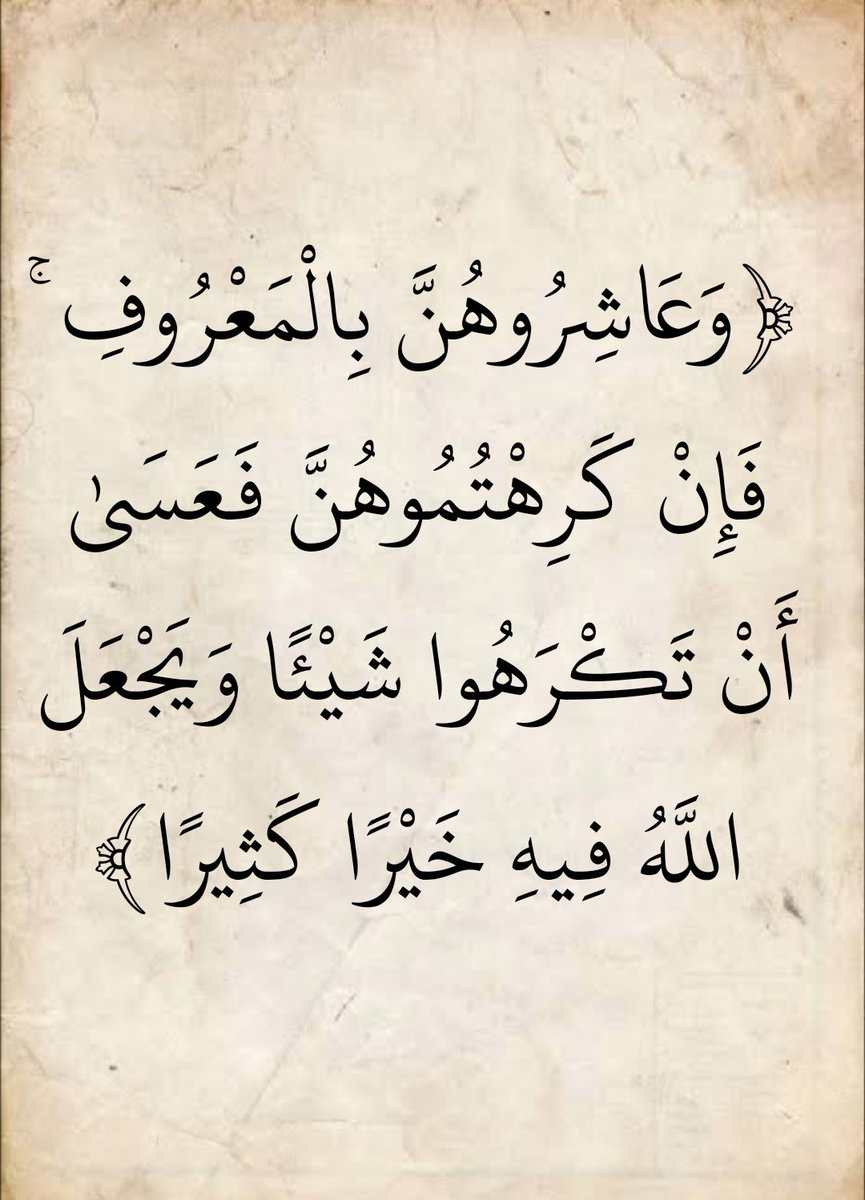 ﴿وَعَاشِرُوهُنَّ بِالْمَعْرُوفِ ۚ
فَإِنْ كَرِهْتُمُوهُنَّ فَعَسَىٰ
أَنْ تَكْرَهُوا شَيْئًا وَيَجْعَلَ
اللَّهُ فِيهِ خَيْرًا كَثِيرًا﴾